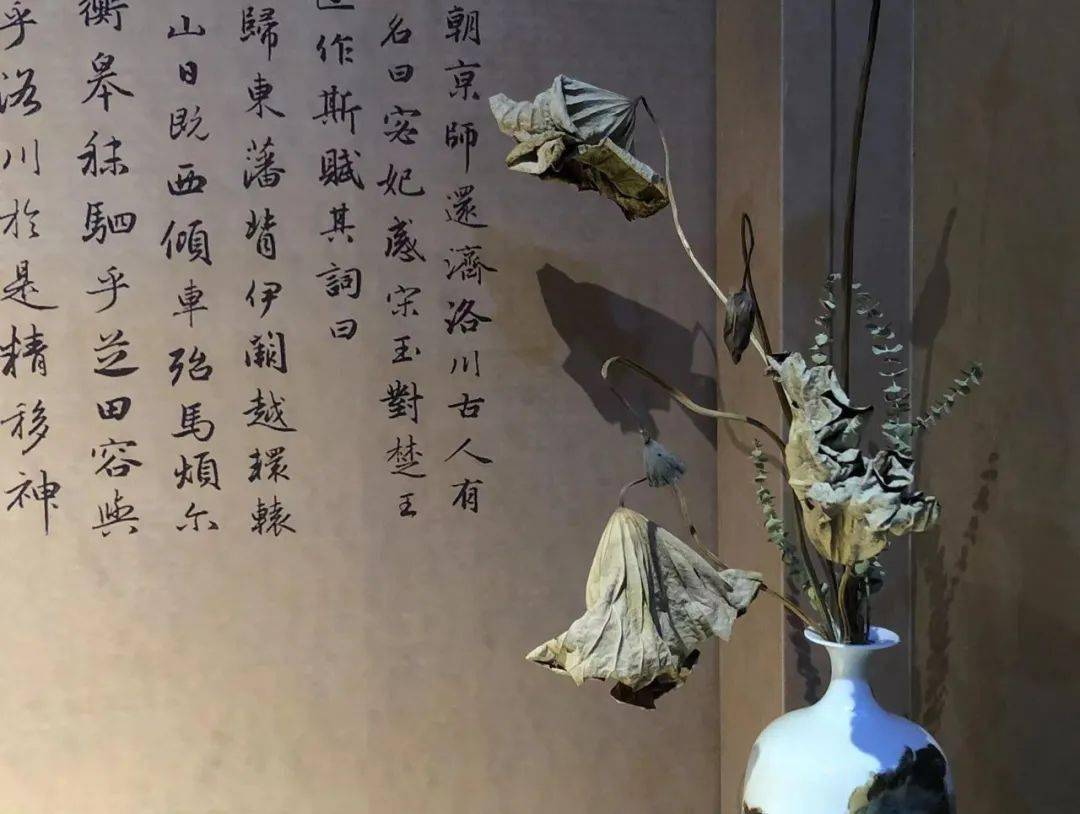 朝京師還濟洛川古人有
名曰宓妃感宋玉對楚王
作斯賦其詞曰
歸東藩背伊闕越轘轅
山日既西傾車殆馬煩尒
衡皋秣駟乎芝田容與
乎洛川於是精移神